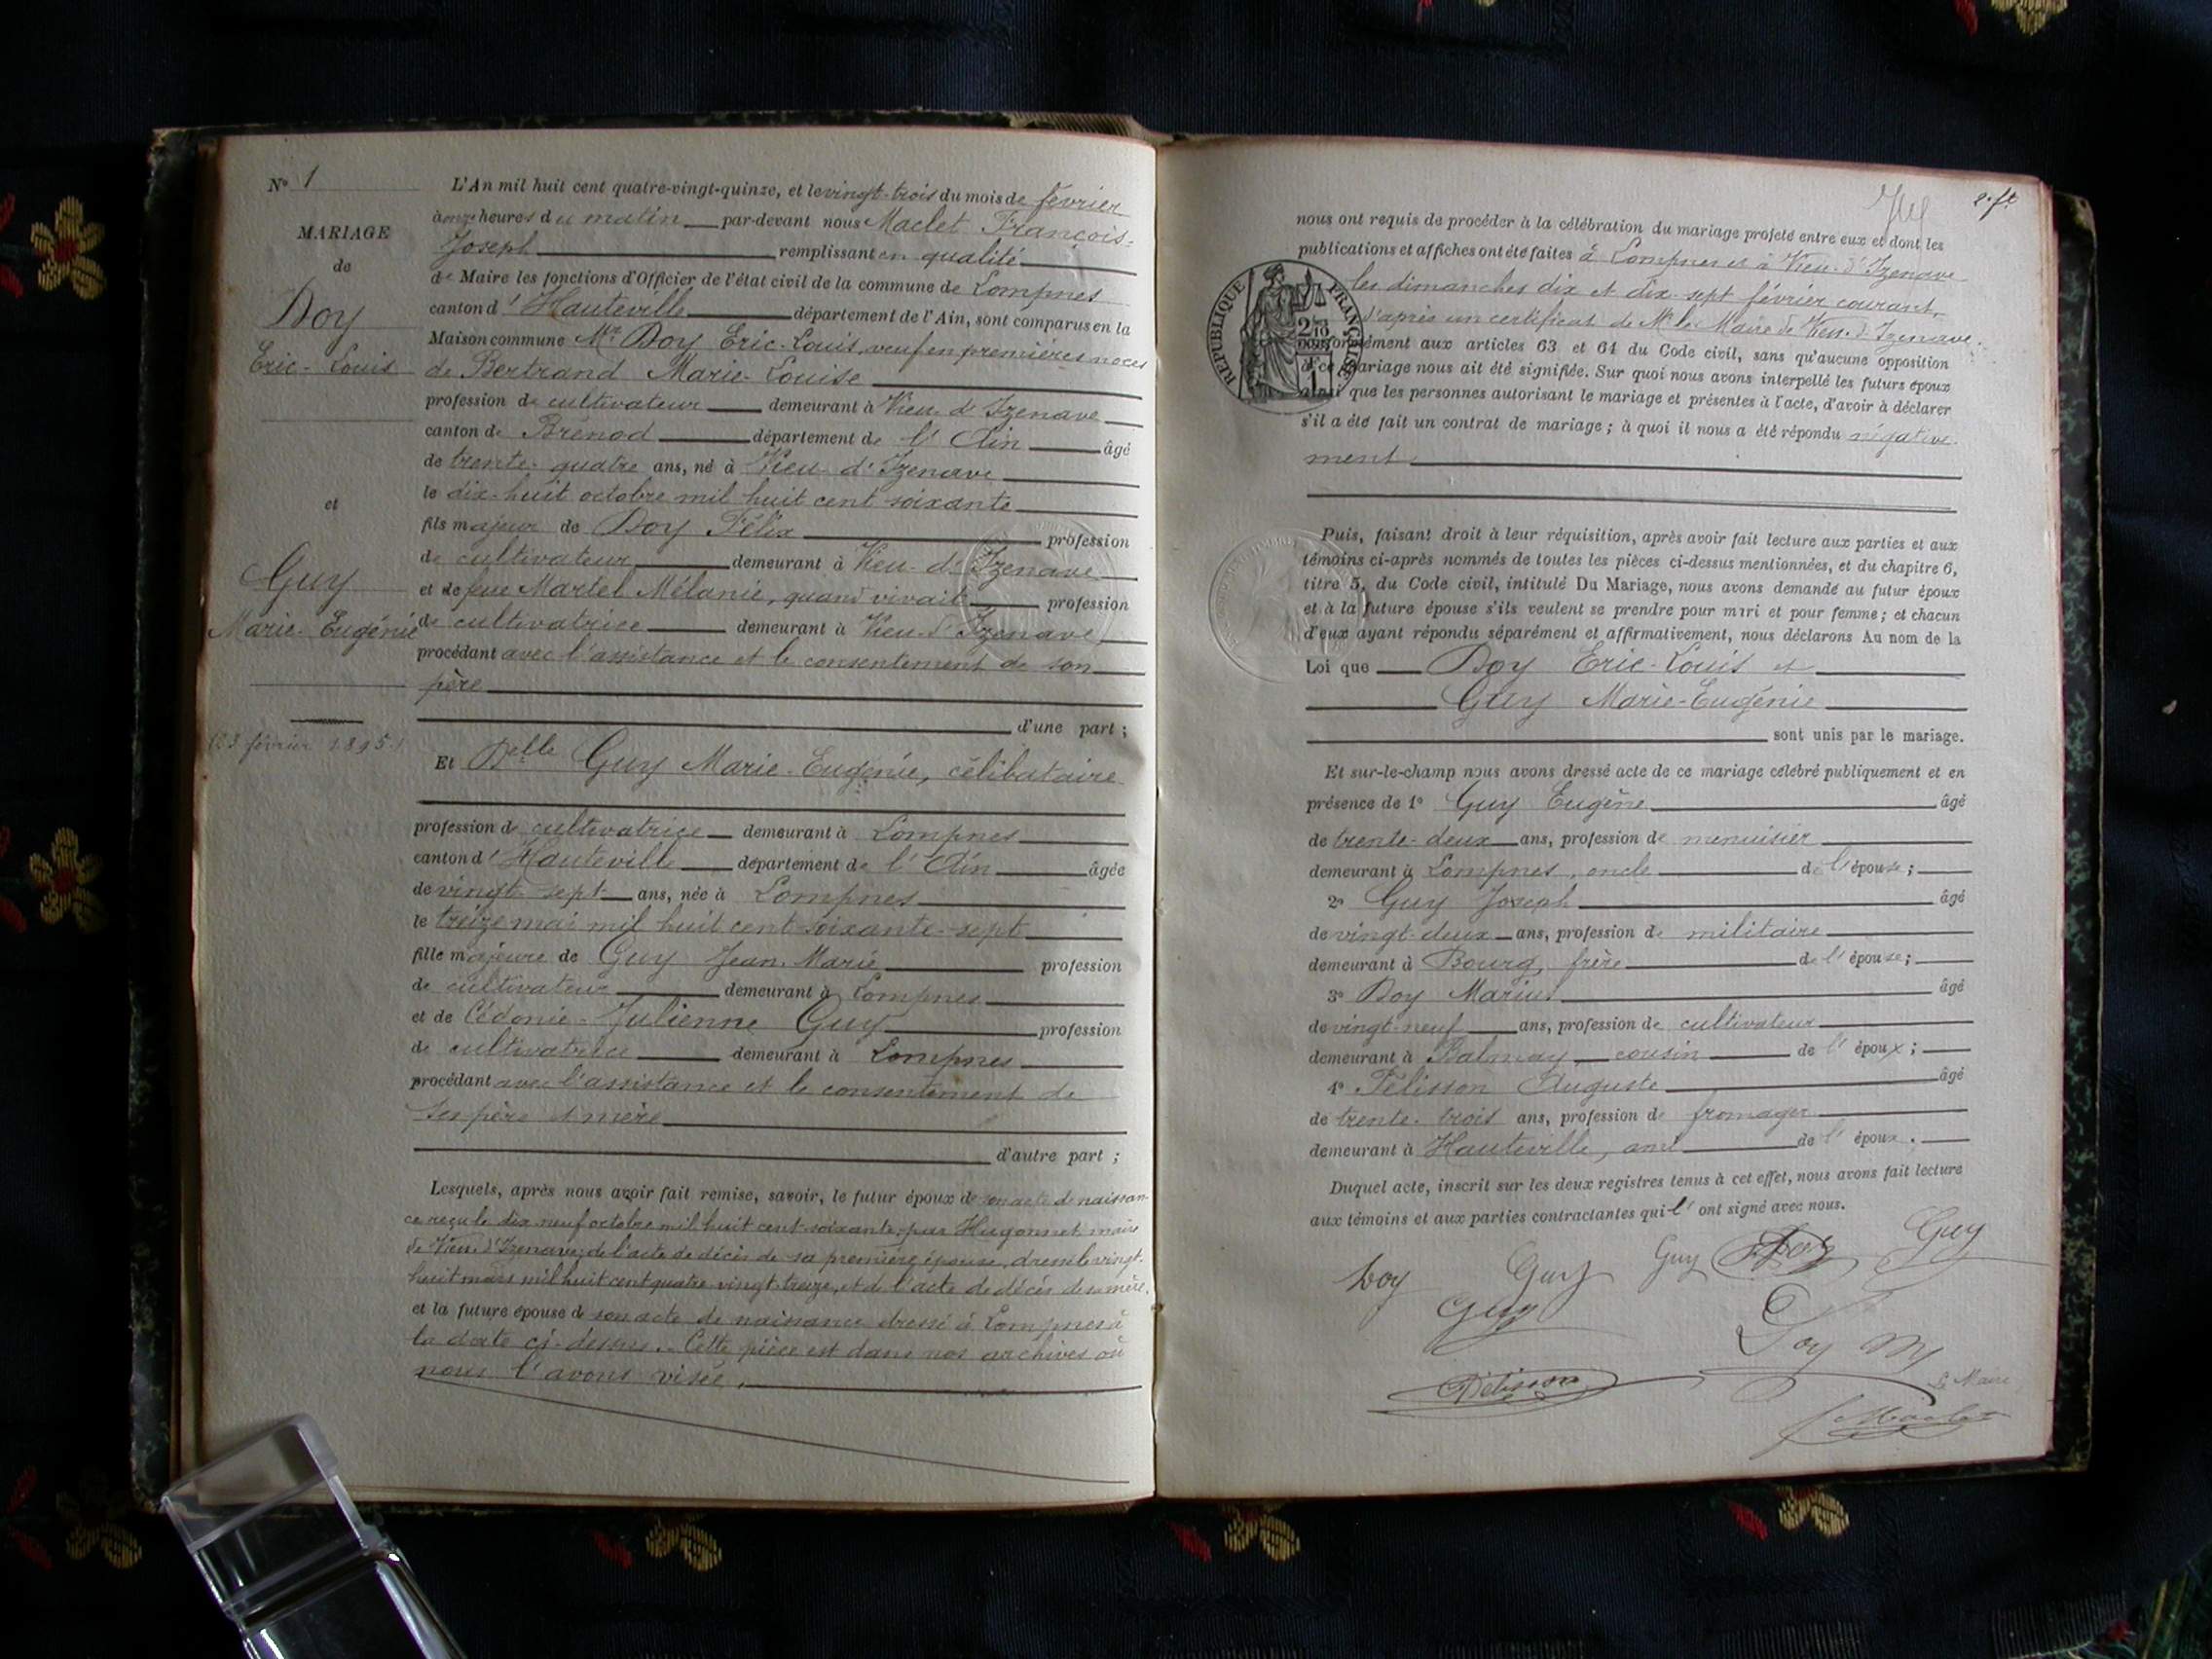 N° 1
MARIAGE
de
Doy
Eric-Louis
et
Guy
Marie-Eugénie
23 février 1895
L'An mil huit cent quatre-vingt-quinze, et le vingt-trois du mois de février
à onze heures du matin par-devant nous Maclet François-
Joseph remplissant en qualité
de Maire les fonctions d'Officier de l'état civil de la commune de Lompnes
canton d'Hauteville département de l'Ain, sont comparus en la
Maison commune Mr Doy Eric-Louis, veuf en premières noces
de Bertrand Marie-Louise
profession de cultivateur demeurant à Vieu-d'Izenave
canton de Brénod département de l'Ain âgé
de trente-quatre ans, né à Vieu-d'Izenave
le dix-huit octobre mil huit cent soixante
fils majeur de Doy Félix profession
de cultivateur demeurant à Vieu-d'Izenave
et de feue Martel Mélanie, quand vivait profession
de cultivatrice demeurant à Vieu-d'Izenave,
procédant avec l'assistance et le consentement de son
père
d'une part ;
Et Delle Guy Marie-Eugénie, célibataire
profession de cultivatrice demeurant à Lompnes
canton d'Hauteville département de l'Ain âgée
de vingt-sept ans, née à Lompnes
le treize mai mil huit cent soixante-sept
fille majeure de Guy Jean-Marie profession
de cultivateur demeurant à Lompnes
et de Cédonie-Julienne Guy profession
de cultivatrice demeurant à Lompnes
procédant avec l'assistance et le consentement de
ses père et mère
d'autre part ;
Lesquels, après nous avoir fait remise, savoir, le futur époux de son acte de naissan-
ce reçu le dix neuf octobre mil huit cent soixante, par Hugonnet maire
de Vieu-d'Izenave; de l'acte de décès de sa première épouse, dressé le vingt-
huit mars mil huit cent quatre-vingt-treize, et de l'acte de décès de sa mère,
et la future épouse de son acte de naissance dressé à Lompnes à
la date ci-dessus. Cette pièce est dans nos archives où
nous l'avons visée.
2. ft
nous ont requis de procéder à la célébration du mariage projeté entre eux et dont les
publications et affiches ont été faites à Lompnes et à Vieu-d'Izenave
les dimanches dix et dix-sept février courant,
d'après un certificat de Mr le Maire de Vieu-d'Izenave.
conformément aux articles 63 et 64 du Code civil, sans qu'aucune opposition
à ce mariage nous ait été signifiée. Sur quoi nous avons interpellé les futurs époux
ainsi que les personnes autorisant le mariage et présentes à l'acte, d'avoir à déclarer
s'il a été fait un contrat de mariage ; à quoi il nous a été répondu négative-
ment
RÉPUBLIQUE FRANÇAISE
Puis, faisant droit à leur réquisition, après avoir fait lecture aux parties et aux
témoins ci-après nommés de toutes les pièces ci-dessus mentionnées, et du chapitre 6,
titre 5, du Code civil, intitulé Du Mariage, nous avons demandé au futur époux
et à la future épouse s'ils veulent se prendre pour mari et pour femme ; et chacun
d'eux ayant répondu séparément et affirmativement, nous déclarons Au nom de la
Loi que Doy Eric-Louis et
Guy Marie-Eugénie
sont unis par le mariage.
Et sur-le-champ nous avons dressé acte de ce mariage célébré publiquement et en
présence de 1° Guy Eugène âgé
de trente-deux ans, profession de menuisier
demeurant à Lompnes, oncle de l'épouse ;
2° Guy Joseph âgé
de vingt-deux ans, profession de militaire
demeurant à Bourg, frère de l'épouse ;
3° Doy Marius âgé
de vingt-neuf ans, profession de cultivateur
demeurant à Balmay cousin de l'époux ;
4° Pélisson Auguste âgé
de trente-trois ans, profession de fromager
demeurant à Hauteville, ami de l'époux.
Duquel acte, inscrit sur les deux registres tenus à cet effet, nous avons fait lecture
aux témoins et aux parties contractantes qui l'ont signé avec nous.
Doy Guy Guy Doy Guy
Guy Doy M
Pélisson Le Maire
Maclet